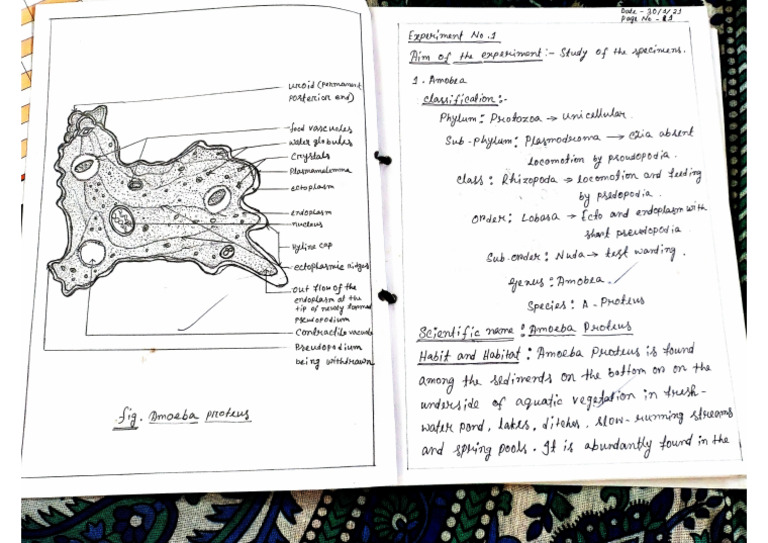 uroid (permanent
posterior end)
food vascules
water globules
Crystals
Plasmamelemma
ectoplasm
endoplasm
nucleus
hyline cap
ectoplasmic ridges
out flow of the
endoplasm at the
tip of newly formed
pseudopodium
Contractile vacuole
Pseudopodium
being withdrawn
fig. Amoeba proteus
Date - 30/1/21
Page No -
Experiment No. 1
Aim of the experiment:- Study of the specimens.
1. Amobea
Classification:-
Phylum: Protozoa → unicellular.
Sub-phylum: Plasmodroma → absent
locomotion by pseudopodia.
Class: Rhizopoda → locomotion and feeding
by
Order: Lobasa → Ecto and endoplasm with
short pseudopodia.
Sub-order: Nuda → test wanding.
Genus: Amobea.
Species: A - Proteus
Scientific name: Amoeba Proteus
Habit and Habitat: Amoeba Proteus is found
among the sediments on the bottom on on the
underside of aquatic vegetation in fresh-
water pond, lakes, ditches, slow-running streams
and spring pools. It is abundantly found in the